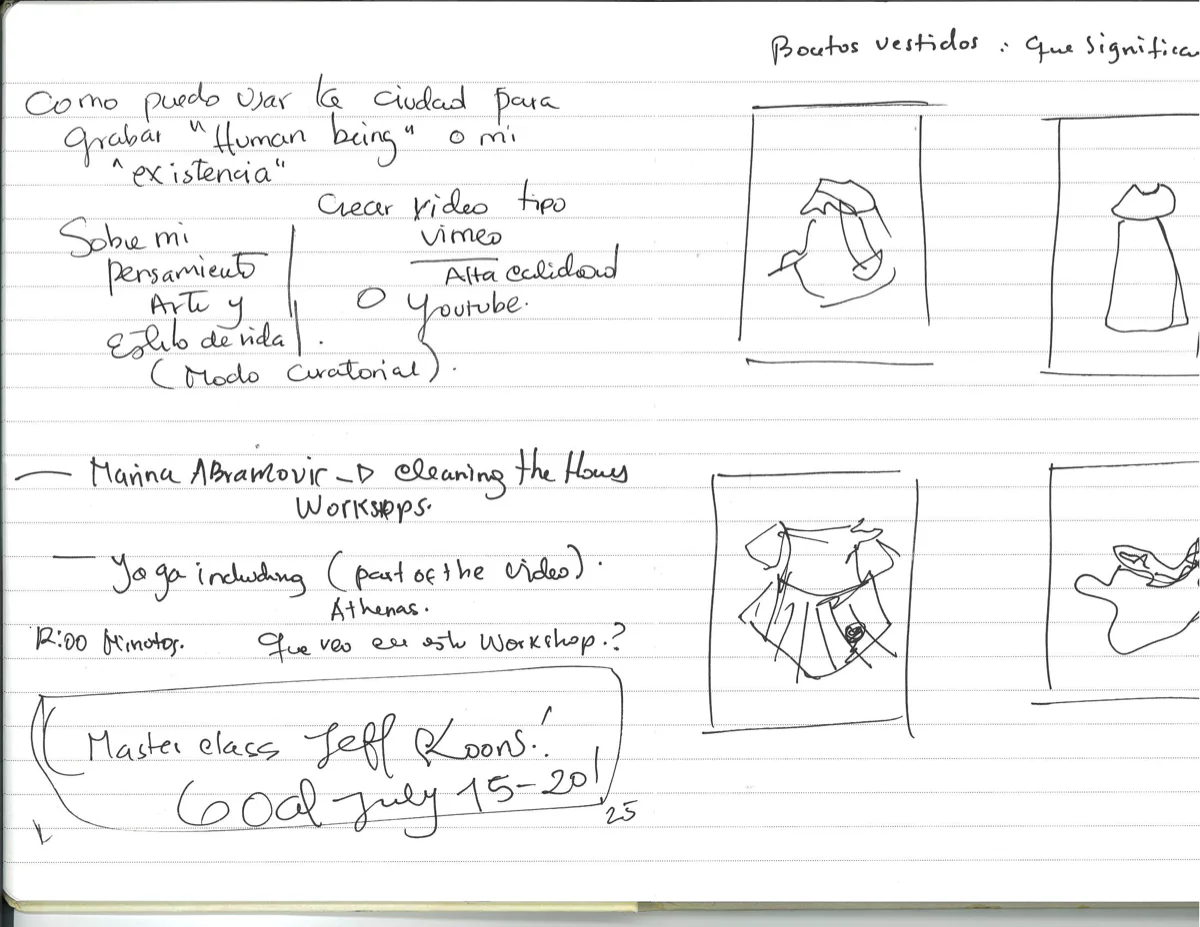 Como puedo usar la ciudad para
grabar "Human being" o mi
"existencia"
Crear video tipo
vimeo
Alta calidad
O Youtube.
Sobre mi
pensamiento
Arte y
Estilo de vida
(Modo Curatorial).
— Marina Abramovic → cleaning the
Workshops.
— Yoga including (part of the video).
Athenas.
12:00 Minutos. Que veo en este Workshop.?
Master class Jeff Koons!
Goal July 15-20!
25
vestidos : que significa